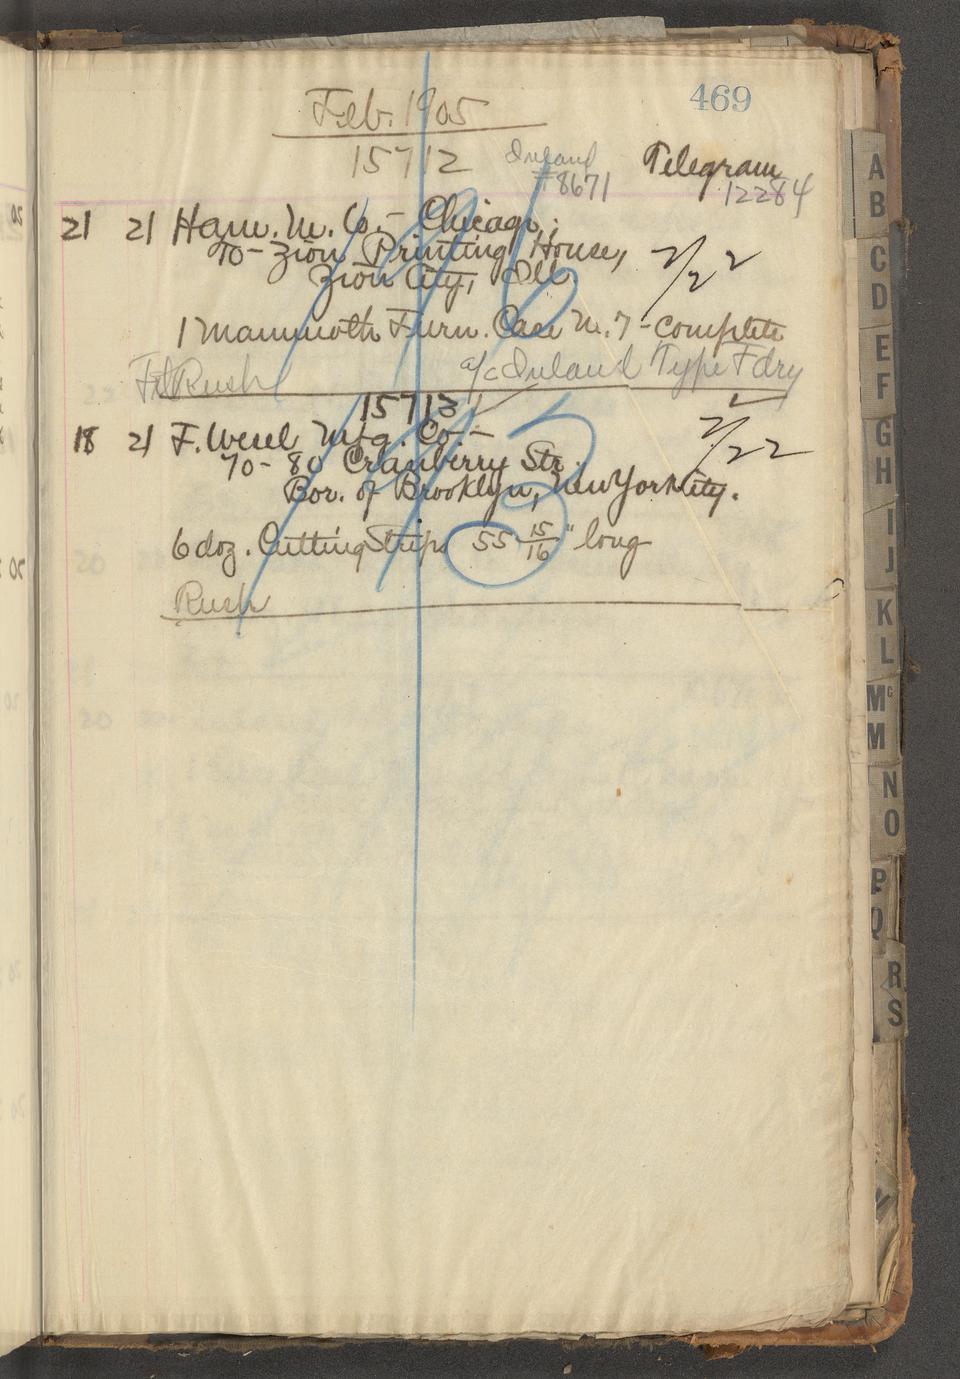 469
Feb. 1905
15712 Inland #8671 Telegram 12284
21 21 Ham. M. Co. - Chicago;
To - Zion Printing House,
Zion City, Ill. 2/22
1 Mammoth Furn. Case No. 7 - complete
Ft Rush a/c Inland Type Fdry
15713
18 21 F. Wesel Mfg. Co. - 2/22
70 - 80 Cranberry Str.
Bor. of Brooklyn, New York City.
6 doz. Cutting Strips 55 15/16" long
Rush
A
B
C
D
E
F
G
H
I
J
K
L
Mc
M
N
O
P
Q
R
S